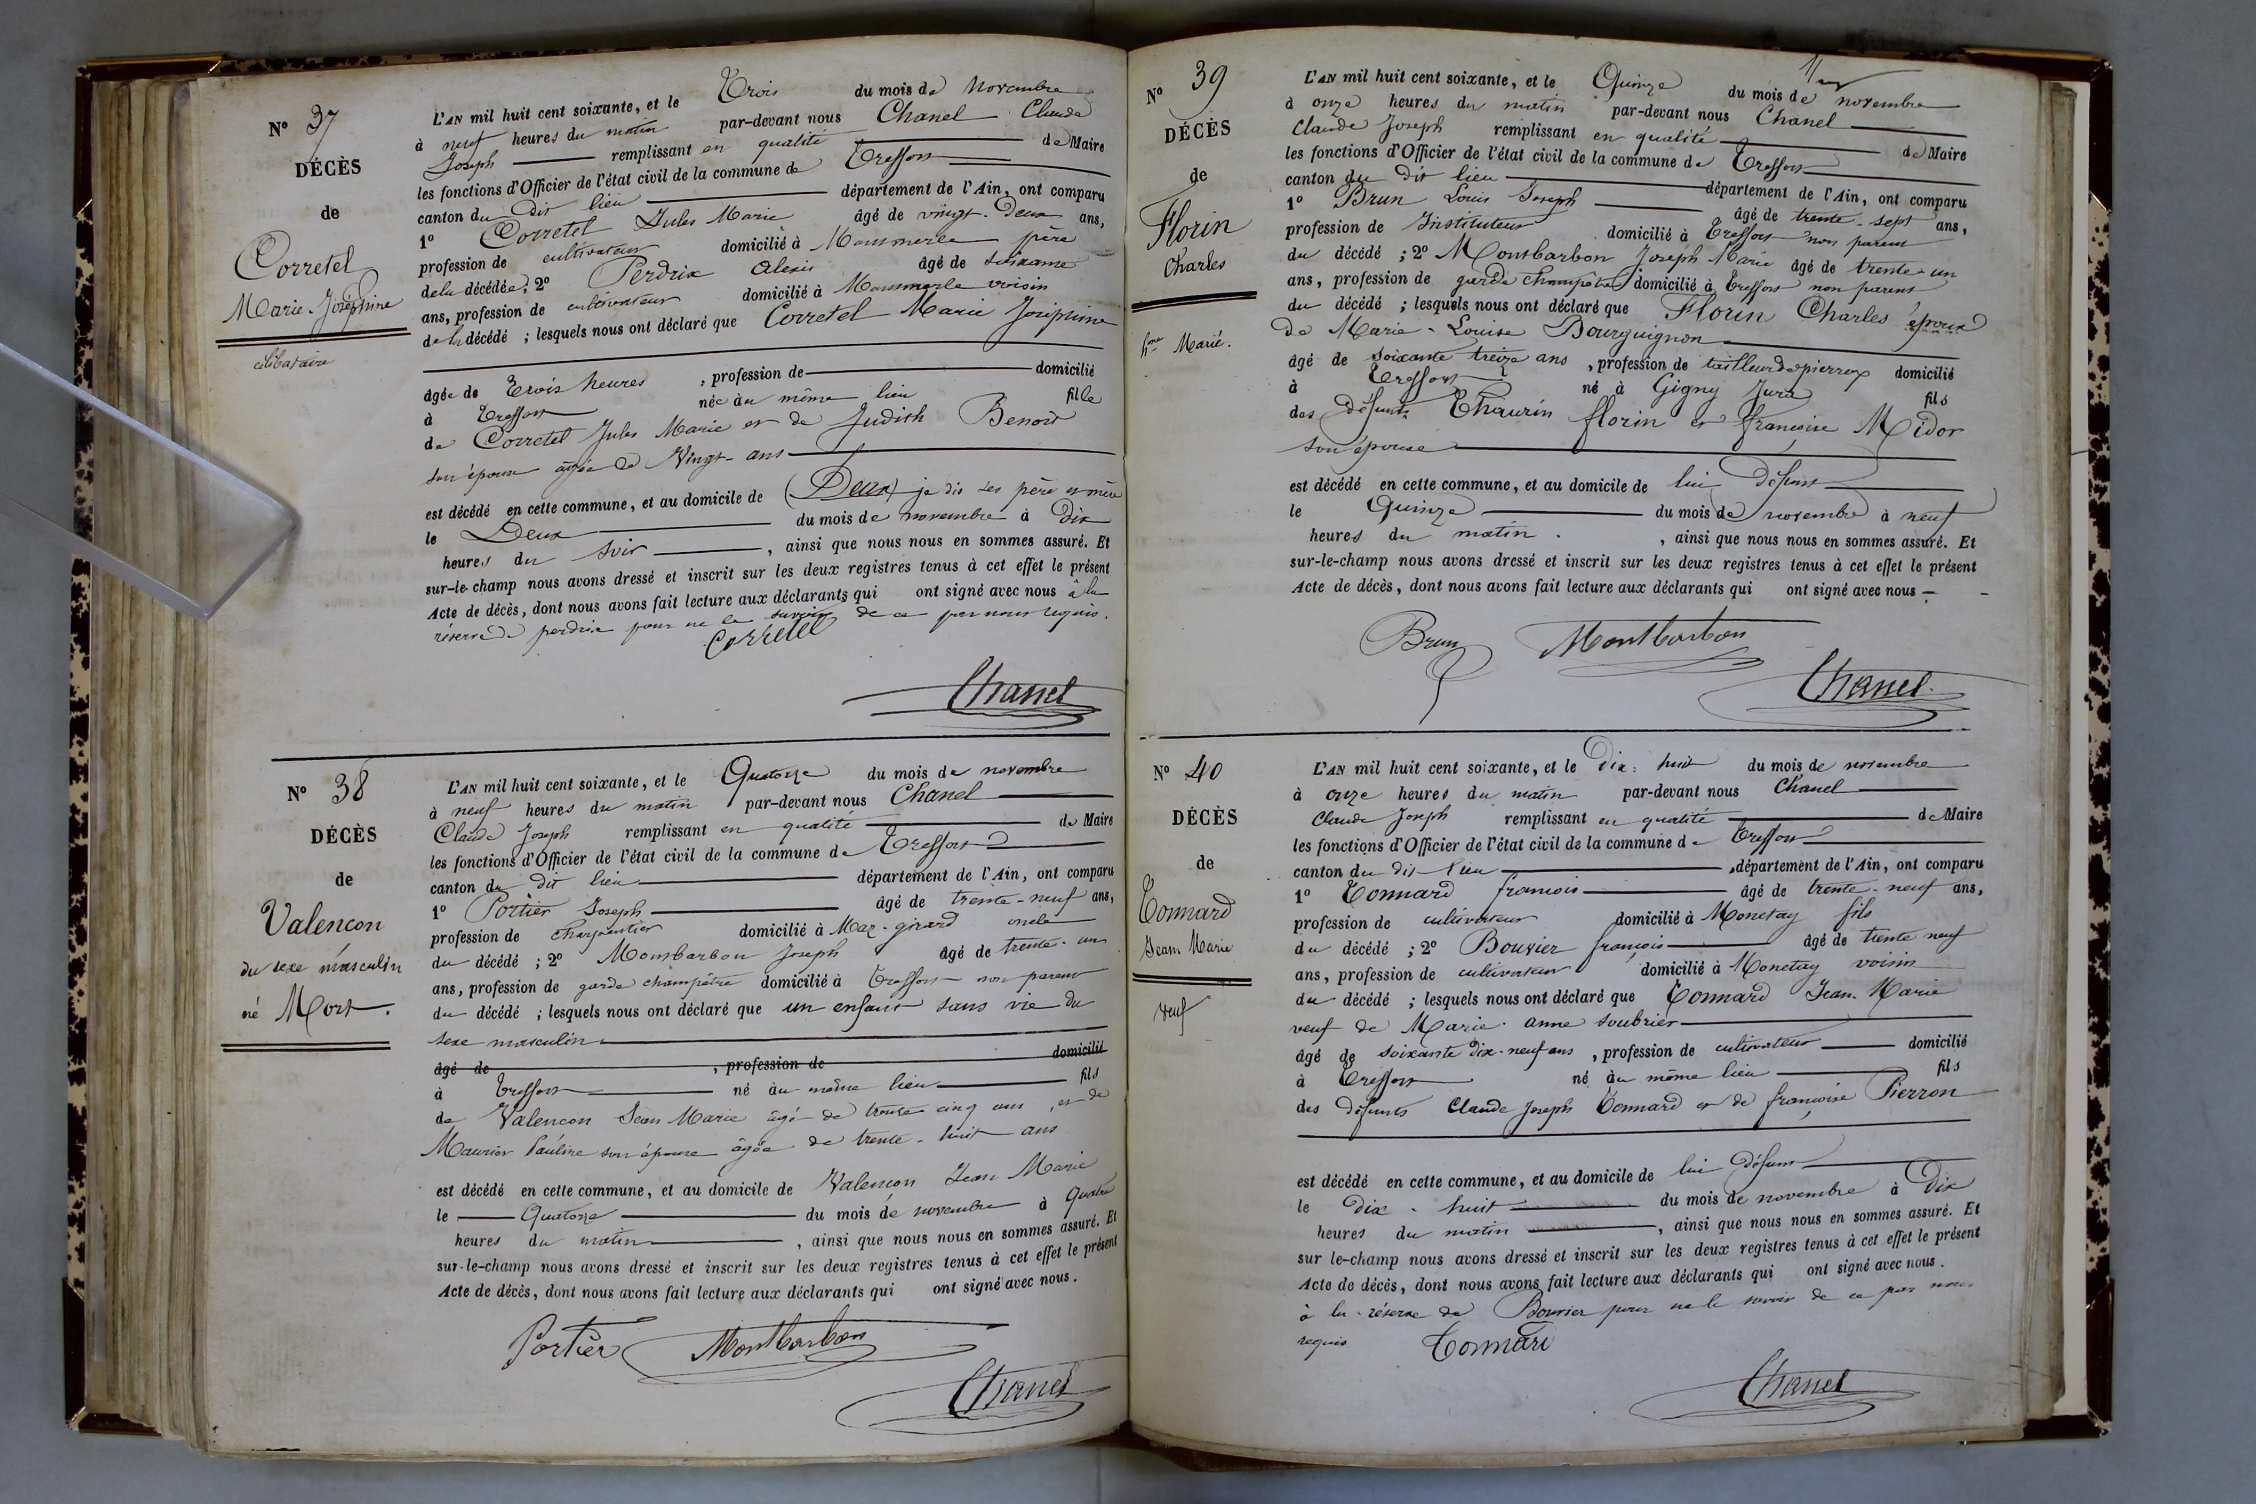 Nº 37
DÉCÈS
de
Corretel
Marie Joséphine
célibataire
L'AN mil huit cent soixante, et le Trois du mois de Novembre
à neuf heures du matin par-devant nous Chanel Claude
Joseph remplissant en qualité de Maire
les fonctions d'Officier de l'état civil de la commune de Treffort
canton du dit lieu département de l'Ain, ont comparu
1º Corretel Jules Marie âgé de vingt-deux ans,
profession de cultivateur domicilié à Montmerle père
de la décédée; 2º Perdrix Alexis âgé de soixante
ans, profession de cultivateur domicilié à Montmerle voisin
de la décédé ; lesquels nous ont déclaré que Corretel Marie Joséphine
âgée de Trois heures , profession de domicilié
à Treffort née au même lieu fille
de Corretel Jules Marie et de Judith Benoit
son épouse âgée de Vingt-ans
est décédé en cette commune, et au domicile de (Deux) je dis ses père et mère
le Deux du mois de novembre à Dix
heures du soir , ainsi que nous nous en sommes assuré. Et
sur-le-champ nous avons dressé et inscrit sur les deux registres tenus à cet effet le présent
Acte de décès, dont nous avons fait lecture aux déclarants qui ont signé avec nous à la
réserve de perdrix pour ne le savoir de ce par nous requis.
Corretel
Chanel
Nº 38
DÉCÈS
de
Valencon
du sexe masculin
né Mort.
L'AN mil huit cent soixante, et le Quatorze du mois de novembre
à neuf heures du matin par-devant nous Chanel
Claude Joseph remplissant en qualité de Maire
les fonctions d'Officier de l'état civil de la commune de Treffort
canton du dit lieu département de l'Ain, ont comparu
1º Portier Joseph âgé de trente-neuf ans,
profession de charpentier domicilié à Maz-girard oncle
du décédé ; 2º Montbarbon Joseph âgé de trente-un
ans, profession de garde champêtre domicilié à Treffort non parent
du décédé ; lesquels nous ont déclaré que un enfant sans vie du
sexe masculin
âgé de , profession de domicilié
à Treffort né au même lieu fils
de Valencon Jean Marie âgé de trente cinq ans, et de
Maurier Pauline son épouse âgée de trente-huit ans
est décédé en cette commune, et au domicile de Valencon Jean Marie
le Quatorze du mois de novembre à Quatre
heures du matin , ainsi que nous nous en sommes assuré. Et
sur-le-champ nous avons dressé et inscrit sur les deux registres tenus à cet effet le présent
Acte de décès, dont nous avons fait lecture aux déclarants qui ont signé avec nous.
Portier Montbarbon
Chanel
11
Nº 39
DÉCÈS
de
Florin
Charles
Marié.
L'AN mil huit cent soixante, et le Quinze du mois de novembre
à onze heures du matin par-devant nous Chanel
Claude Joseph remplissant en qualité de Maire
les fonctions d'Officier de l'état civil de la commune de Treffort
canton du dit lieu département de l'Ain, ont comparu
1º Brun Louis Joseph âgé de trente-sept ans,
profession de Instituteur domicilié à Treffort non parent
du décédé ; 2º Montbarbon Joseph Marie âgé de trente-un
ans, profession de garde champêtre domicilié à Treffort non parent
du décédé ; lesquels nous ont déclaré que Florin Charles époux
de Marie-Louise Bourguignon
âgé de soixante treize ans , profession de tailleur de pierres domicilié
à Treffort né à Gigny Jura fils
des défunts Thaurin florin et françoise Midor
son épouse
est décédé en cette commune, et au domicile de lui défunt
le Quinze du mois de novembre à neuf
heures du matin . , ainsi que nous nous en sommes assuré. Et
sur-le-champ nous avons dressé et inscrit sur les deux registres tenus à cet effet le présent
Acte de décès, dont nous avons fait lecture aux déclarants qui ont signé avec nous
Brun Montbarbon
Chanel
Nº 40
DÉCÈS
de
Tonnard
Jean Marie
veuf
L'AN mil huit cent soixante, et le Dix-huit du mois de novembre
à onze heures du matin par-devant nous Chanel
Claude Joseph remplissant en qualité de Maire
les fonctions d'Officier de l'état civil de la commune de Treffort
canton du dit lieu département de l'Ain, ont comparu
1º Tonnard françois âgé de trente-neuf ans,
profession de cultivateur domicilié à Monetay fils
du décédé ; 2º Bouvier françois âgé de trente neuf
ans, profession de cultivateur domicilié à Monetay voisin
du décédé ; lesquels nous ont déclaré que Tonnard Jean-Marie
veuf de Marie-anne soubrier
âgé de soixante dix-neuf ans , profession de cultivateur domicilié
à Treffort né au même lieu fils
des défunts Claude Joseph Tonnard et de françoise Pierron
est décédé en cette commune, et au domicile de lui défunt
le Dix-huit du mois de novembre à Dix
heures du matin , ainsi que nous nous en sommes assuré. Et
sur le-champ nous avons dressé et inscrit sur les deux registres tenus à cet effet le présent
Acte de décès, dont nous avons fait lecture aux déclarants qui ont signé avec nous.
à la réserve de Bouvier pour ne le savoir de ce par nous
requis Tonnard
Chanel